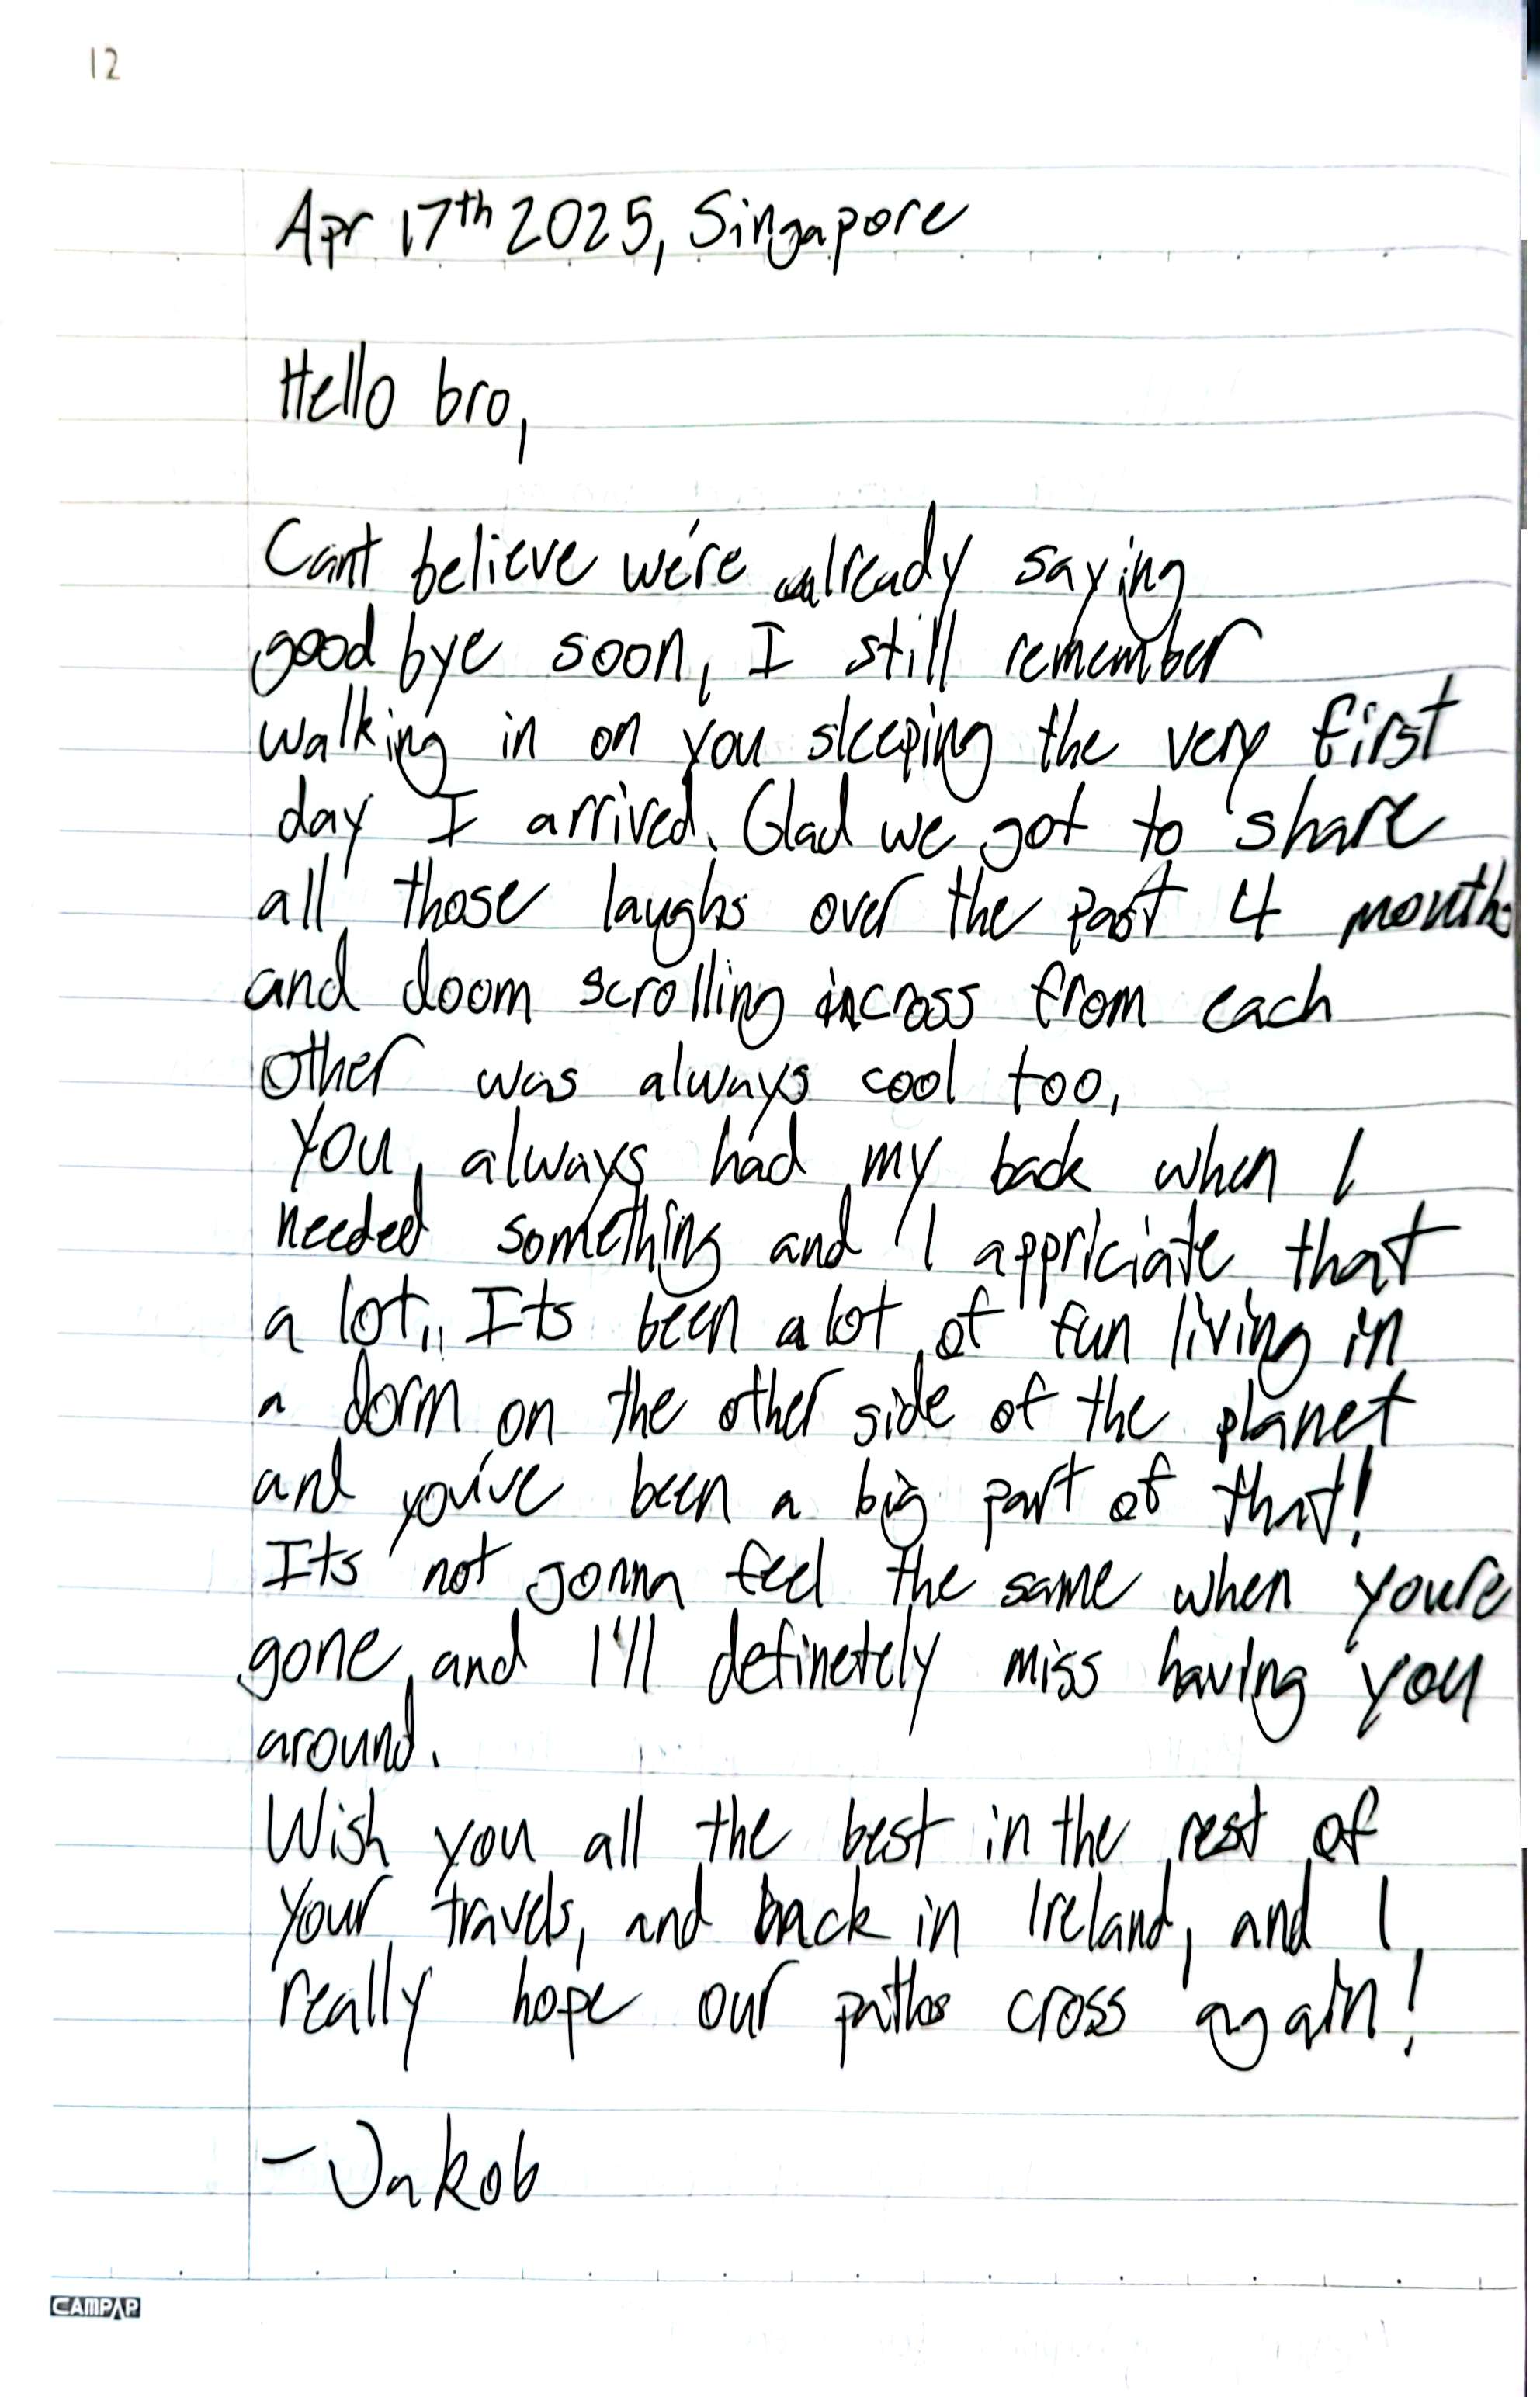 12
Apr 17th 2025, Singapore
Hello bro,
Cant believe we're already saying
good bye soon, I still remember
walking in on you sleeping the very first
day I arrived. Glad we got to share
all those laughs over the past 4 months
and doom scrolling across from each
other was always cool too,
You always had my back when I
needed something and I appriciate that
a lot, Its been a lot of fun living in
a dorm on the other side of the planet
and you've been a big part of that!
Its not gonna feel the same when youre
gone and I'll definetely miss having you
around.
Wish you all the best in the rest of
your travels, and back in Ireland, and I
really hope our paths cross again!
- Jakob
CAMPAP